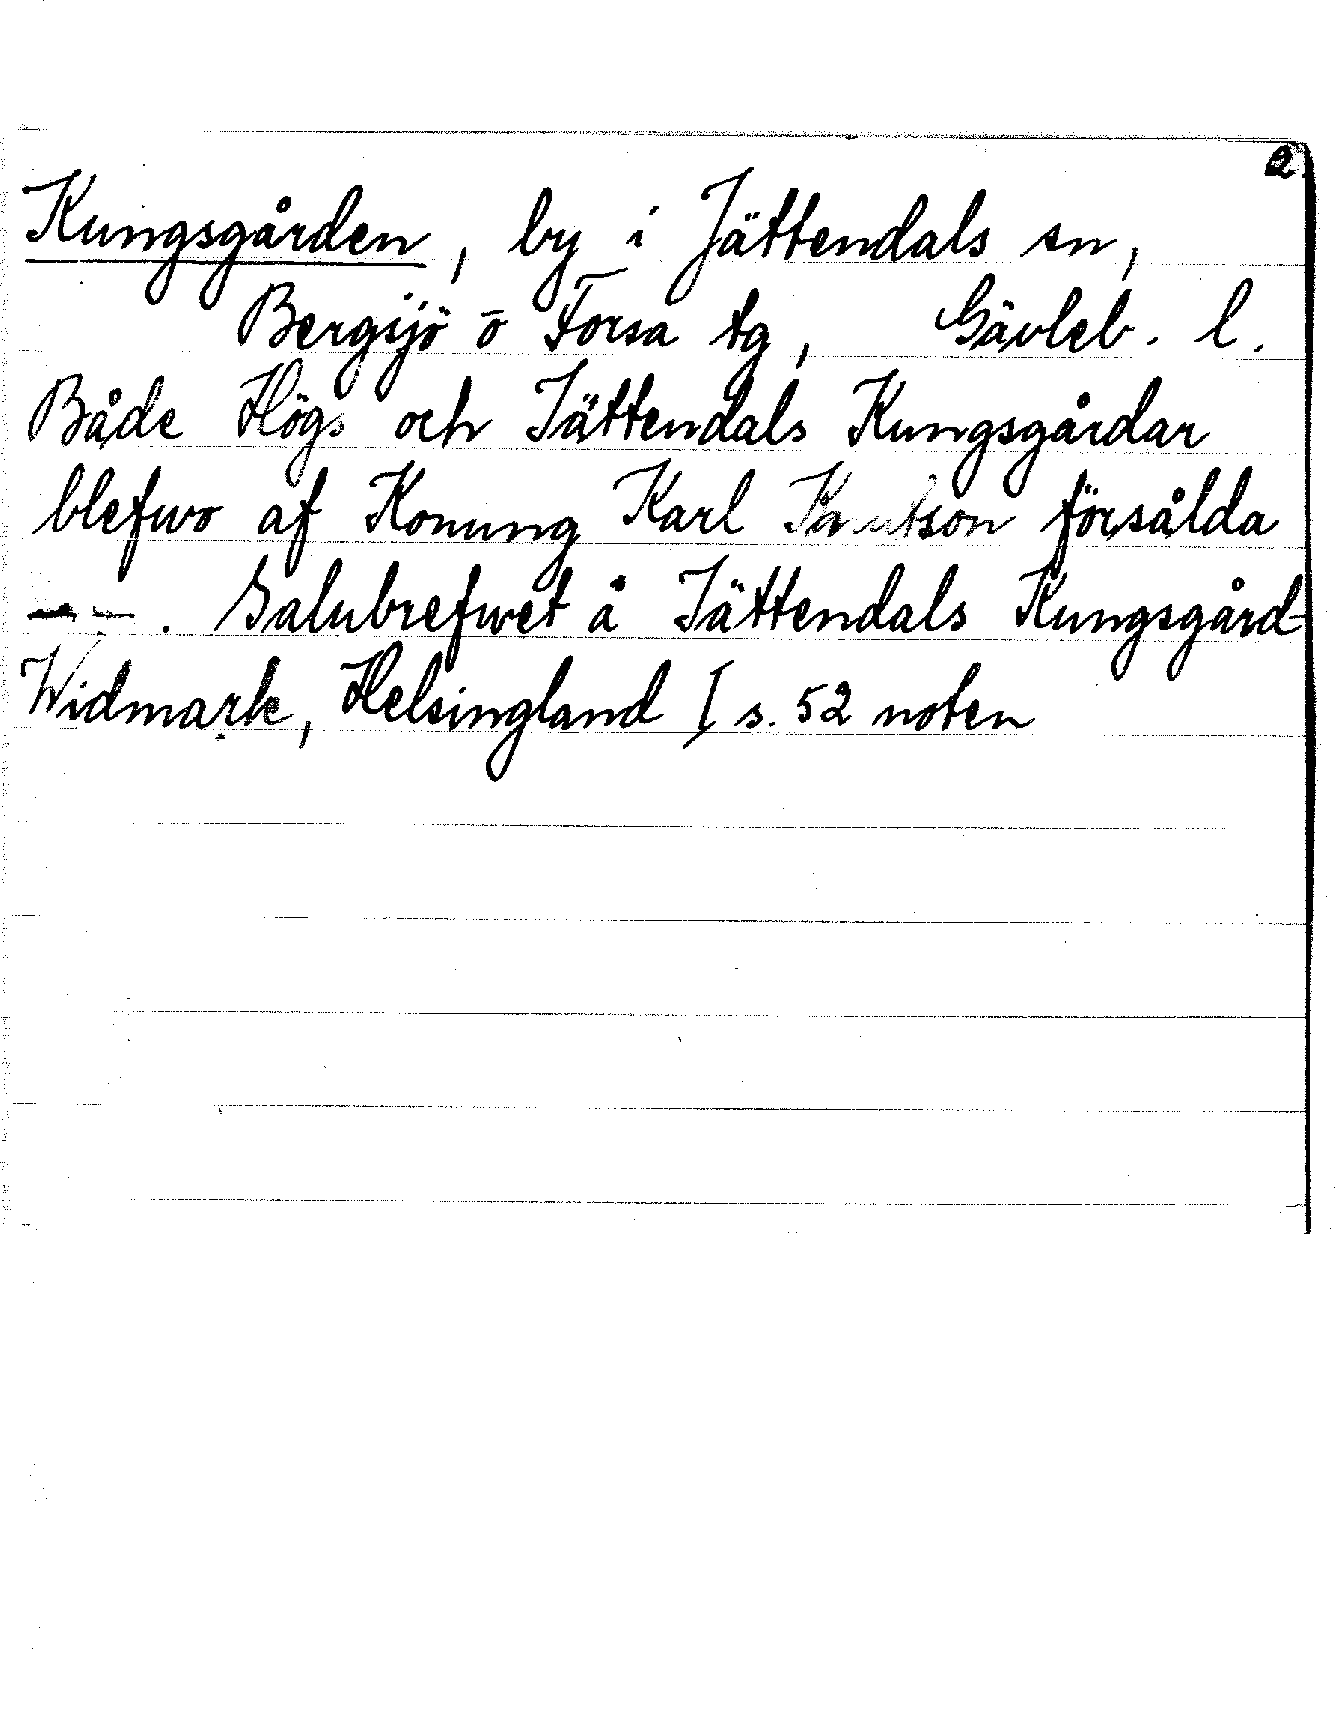 2
Kungsgården, by i Jättendals sn,
Bergsjö o Forsa tg, Gävleb. l.
Både Högs och Jättendals Kungsgårdar
blefwo af Konung Karl Knutson försålda
— — . Salubrefwet å Jättendals Kungsgård –
Widmark, Helsingland I s. 52 noten